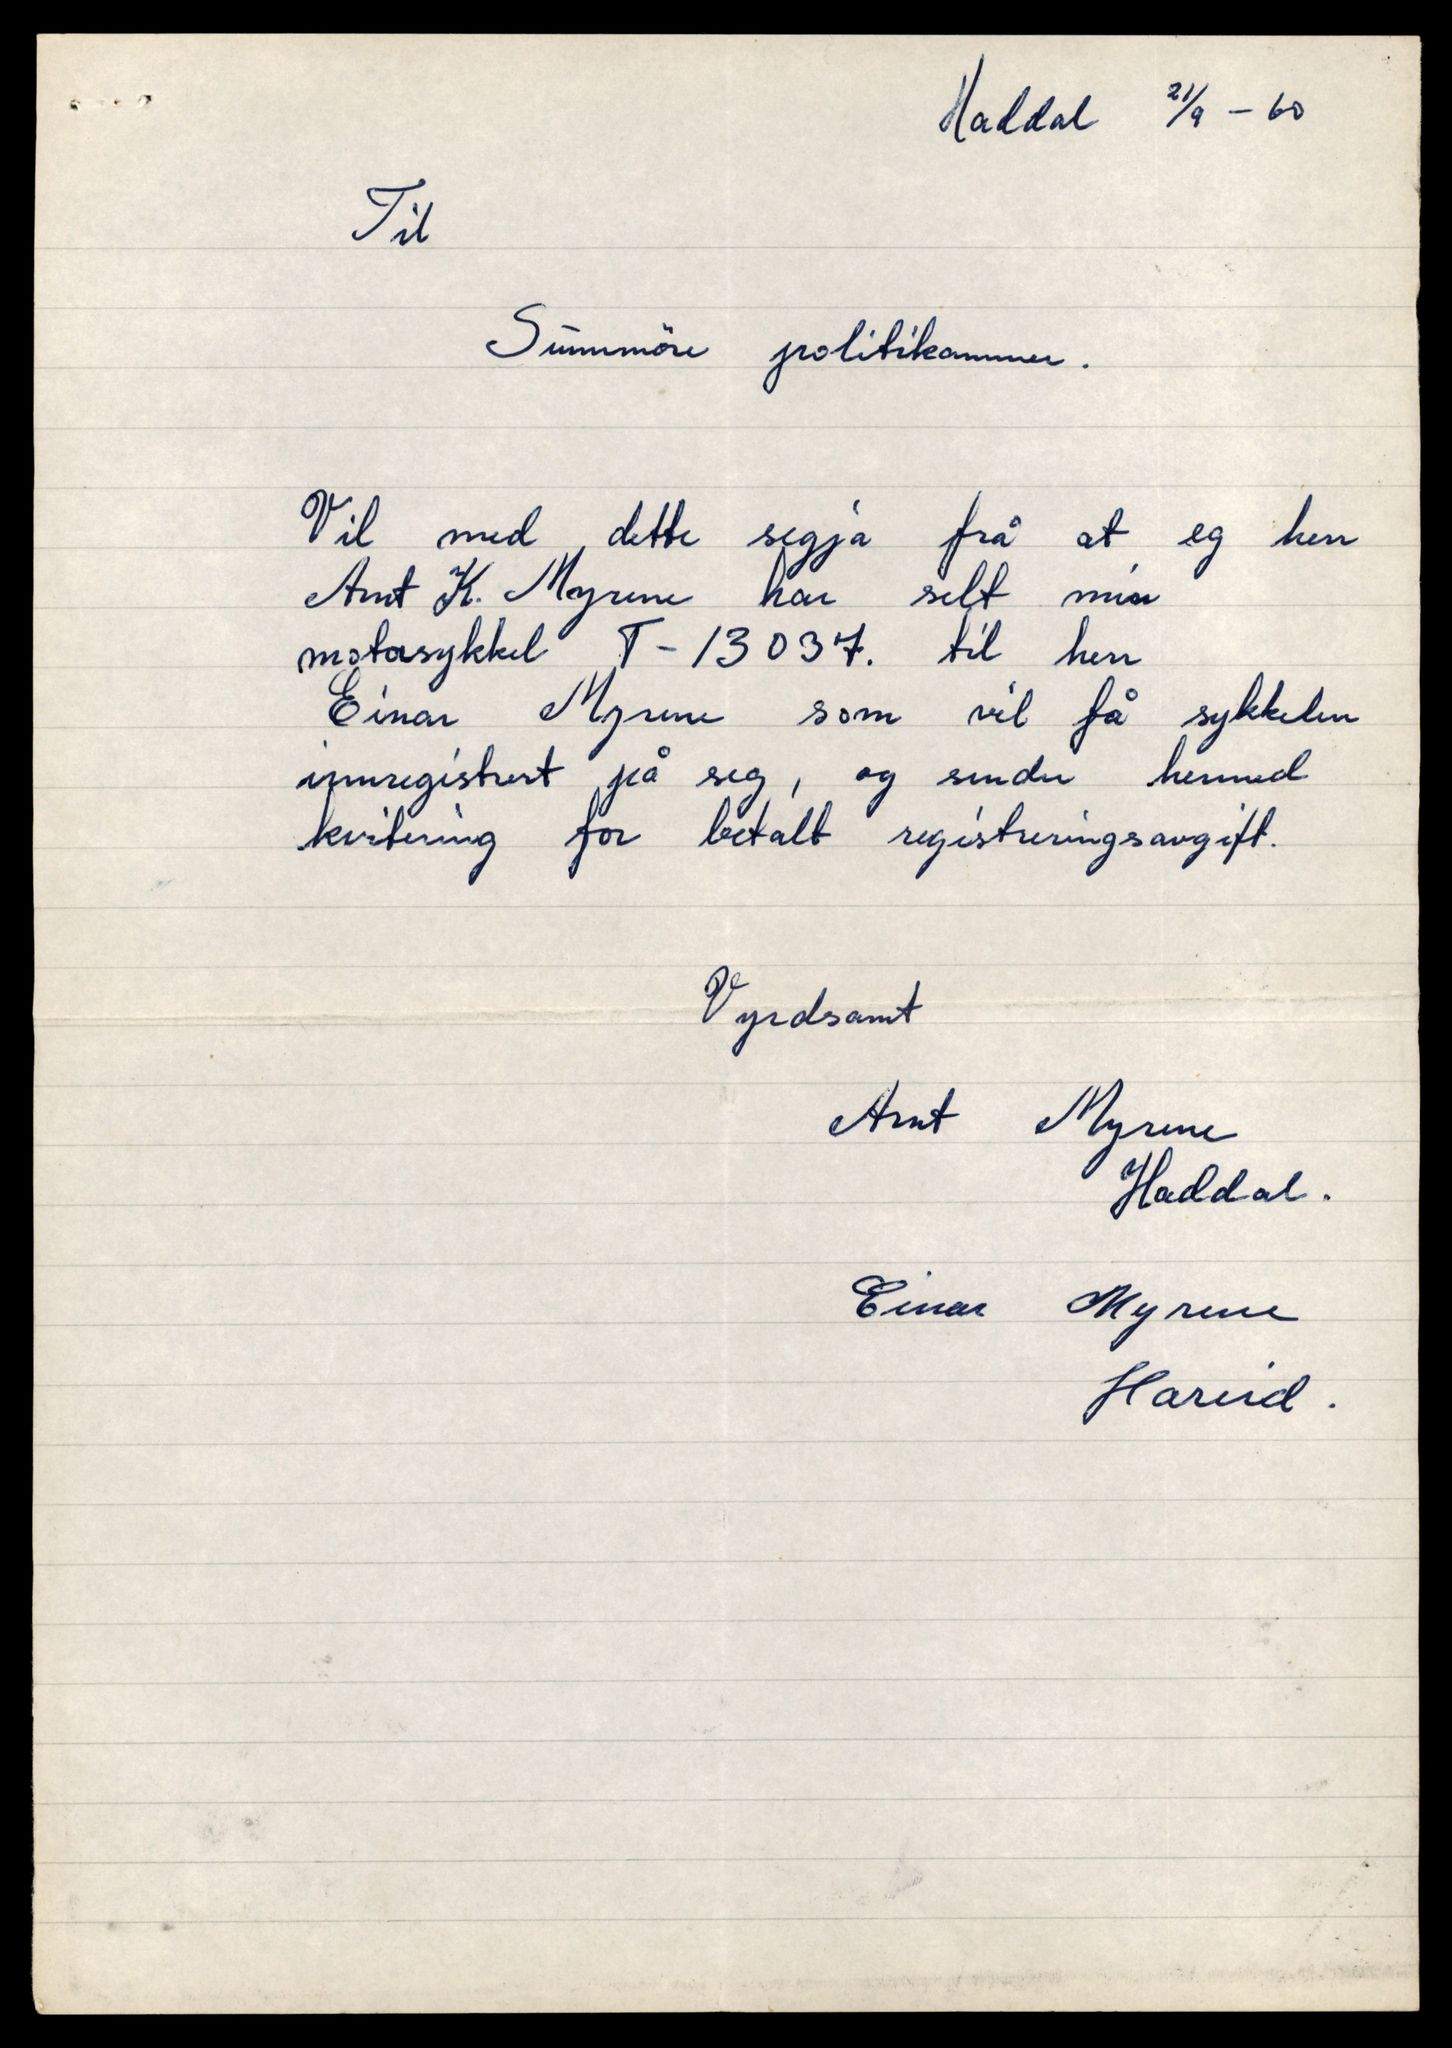 Haddal 21/9 - 60
Til
Sunnmöre politikammer.
Vil med dette segja frå at eg herr
Arnt K. Myrene har selt min
motorsykkel T-13037. til herr
Einar Myrene som vil få sykkelen
innregistrert på seg, og sender hermed
kvitering for betalt registreringsavgift.
Vyrdsamt
Arnt Myrene
Haddal.
Einar Myrene
Hareid.